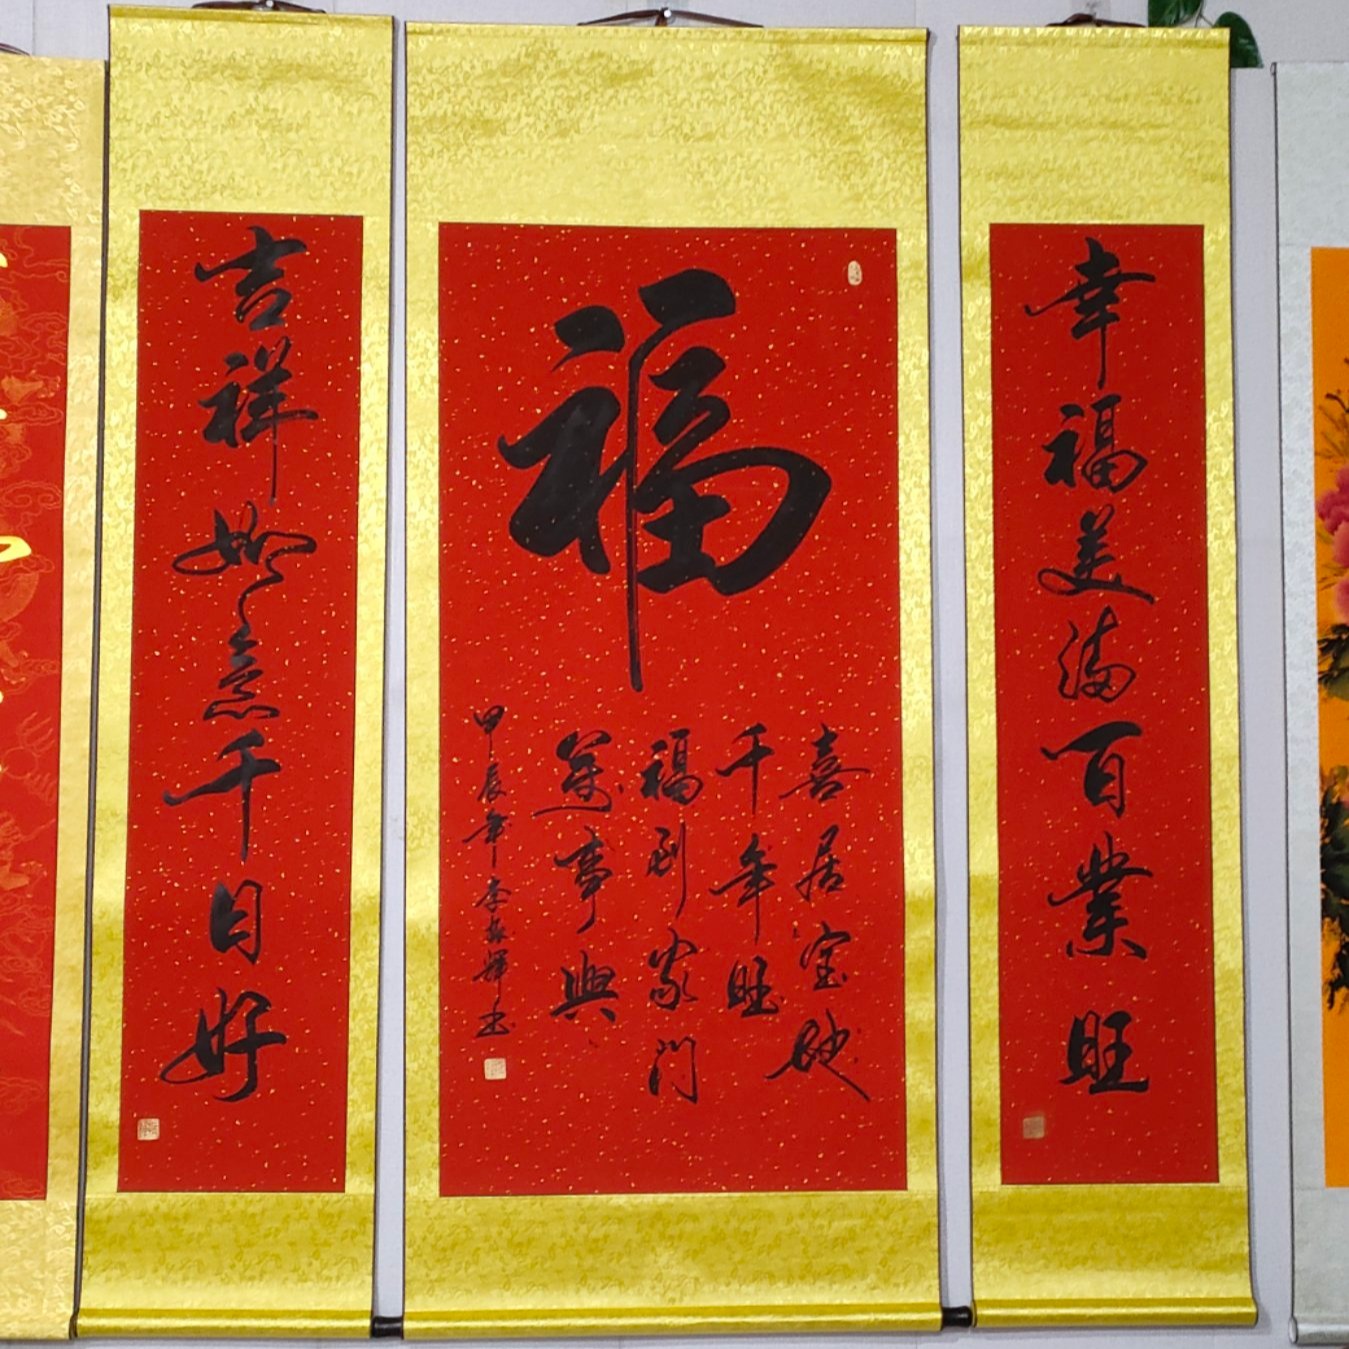 幸福美满百業旺
福
喜居宝地
千年旺
福到家門
萬事興
甲辰年李
書
吉祥如意千日好